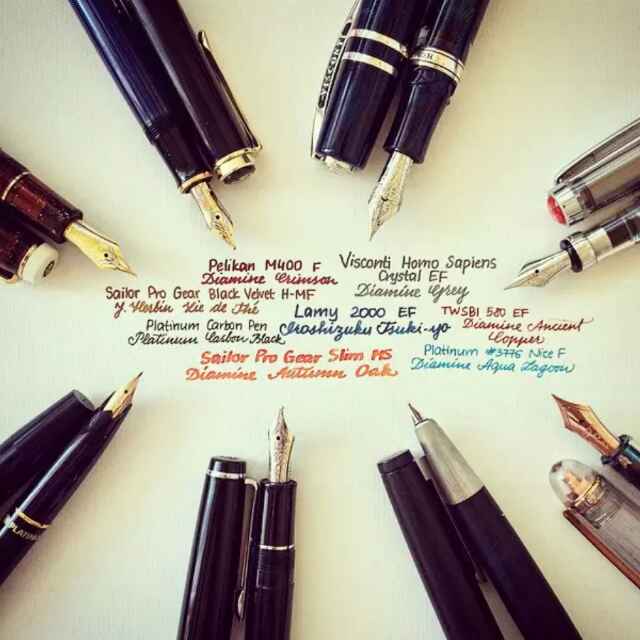 Pelikan M400 F
Diamine Crimson
Visconti Homo Sapiens
Crystal EF
Diamine Grey
Sailor Pro Gear Black Velvet H-MF
J. Herbin Lie de Thé
Lamy 2000 EF
Iroshizuku Tsuki-yo
TWSBI 580 EF
Diamine Ancient
Copper
Platinum Carbon Pen
Platinum Carbon Black
Sailor Pro Gear Slim MS
Diamine Autumn Oak
Platinum #3776 Nice F
Diamine Aqua Lagoon
VISCONTI